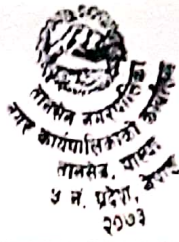 तानसेन नगरपालिका
नगर कार्यपालिकाको कार्यालय
तानसेन, पाल्पा
५ नं. प्रदेश, नेपाल
२०७३